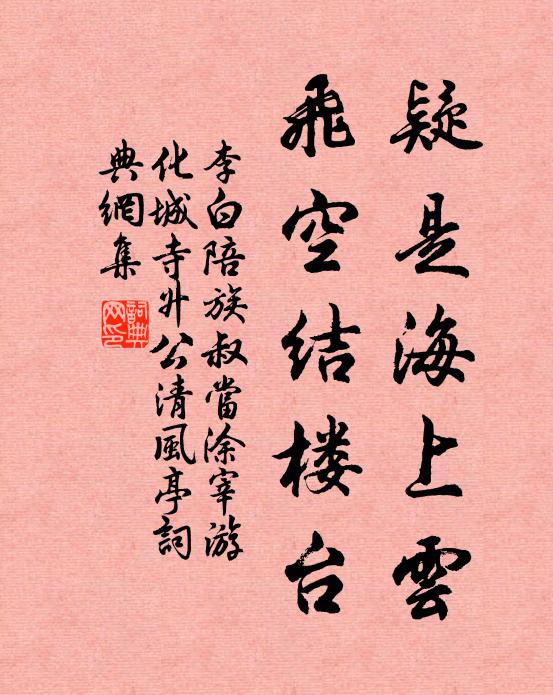 疑是海上雲
飛空结楼台
李白陪族叔當涂宰游
化城寺升公清風亭詞
典網集
詞典
网印